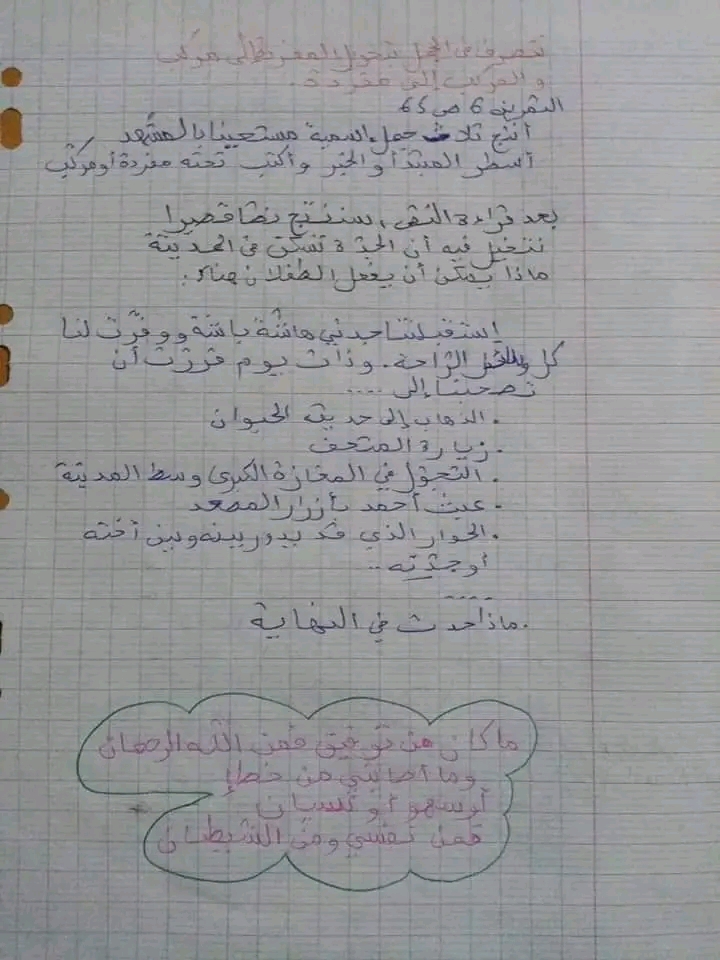 نتصرف في الجمل بتحويل المفردة إلى مركب
والمركب إلى مفردة.
التمرين 6 ص 65
أنتج ثلاث جمل اسمية مستعينا بالمشهد
أسطر المبتدأ والخبر وأكتب تحته مفردة أو مركب
بعد قراءة النص، سننتج نصا قصيرا
نتخيل فيه أن الجدة تسكن في المدينة
ماذا يمكن أن يفعل الطفلان هناك.
إستقبلتنا جدتي هاشة باشة ووفرت لنا
كل الراحة. وذات يوم قررت أن
تصحبنا إلى ....
. الذهاب إلى حديقة الحيوان
. زيارة المتحف
. التجول في المغازة الكبرى وسط المدينة
. عبث أحمد بأزرار المصعد
. الحوار الذي قد يدور بينه وبين أخته
أو جدته ..
....
. ماذا حدث في النهاية
ما كان من توفيق فمن الله الرحمان
وما أصابني من خطإ
أو سهو أو نسيان
فمن نفسي ومن الشيطان